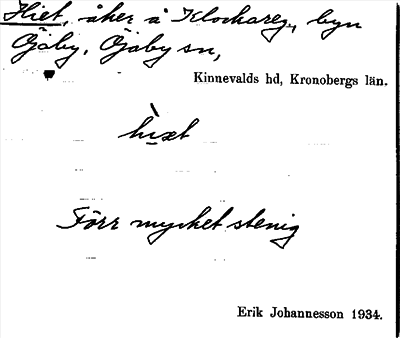 Hiet, åker å Klockareg., byn
Öjaby, Öjaby sn,
Kinnevalds hd, Kronobergs län.
Förr mycket stenig
Erik Johannesson 1934.